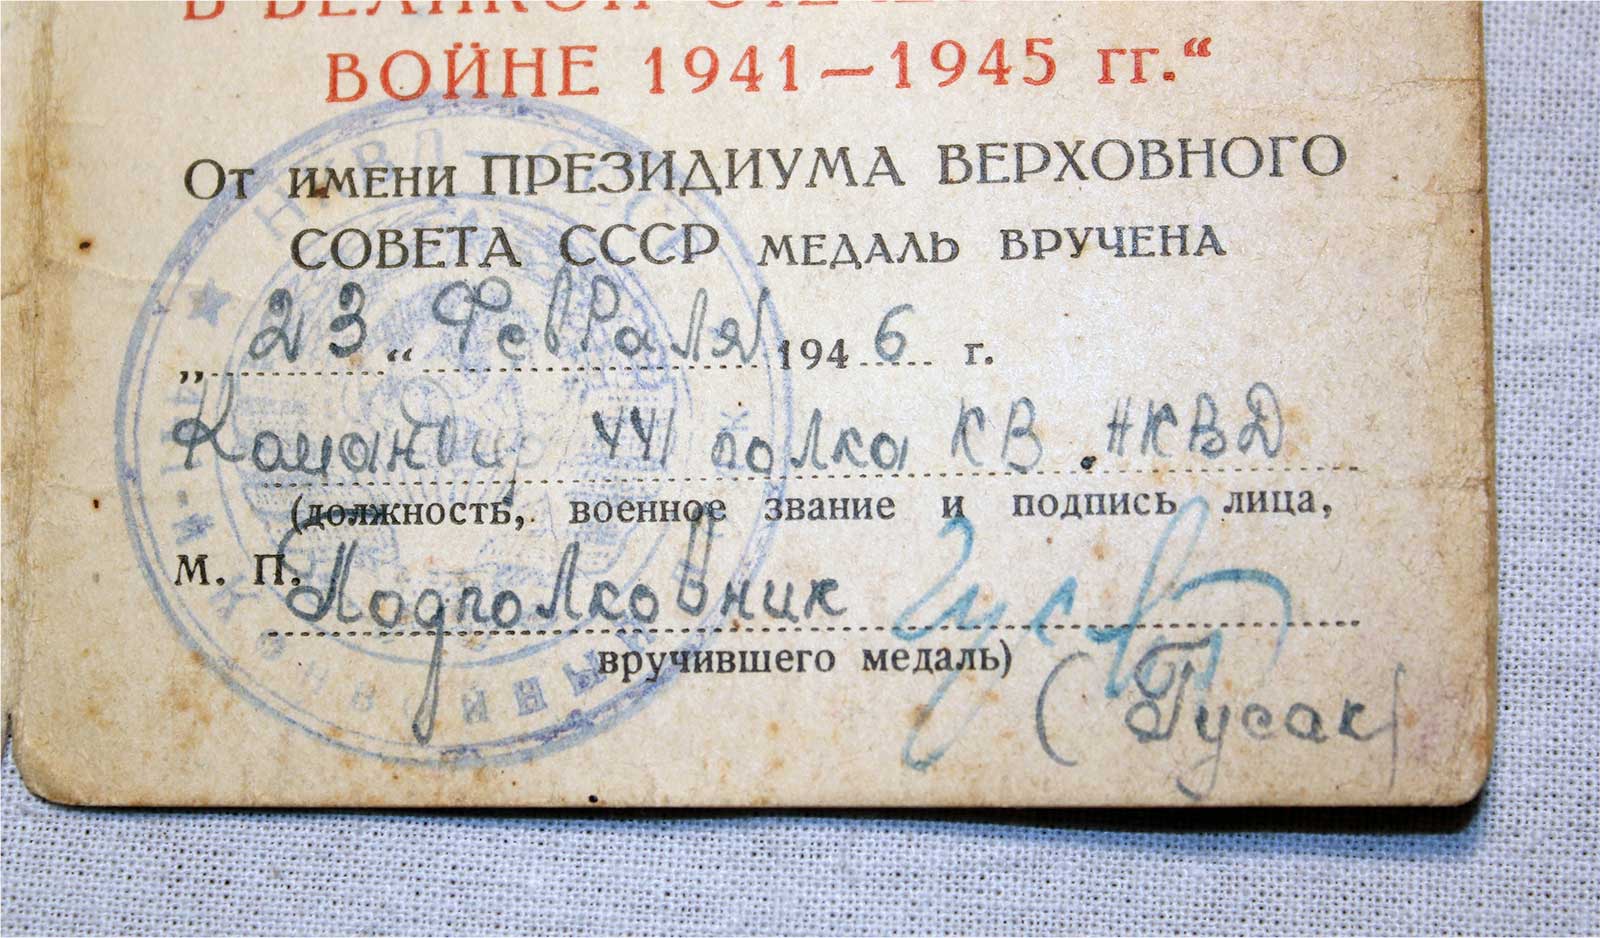 В ВЕЛИКОЙ ОТЕЧЕ
ВОЙНЕ 1941—1945 гг.“
От имени ПРЕЗИДИУМА ВЕРХОВНОГО
СОВЕТА СССР МЕДАЛЬ ВРУЧЕНА
„23“ Февраля 1946 г.
Командир 441 полка КВ НКВД
(должность, военное звание и подпись лица,
М. П. Подполковник
вручившего медаль)
(Гусак)